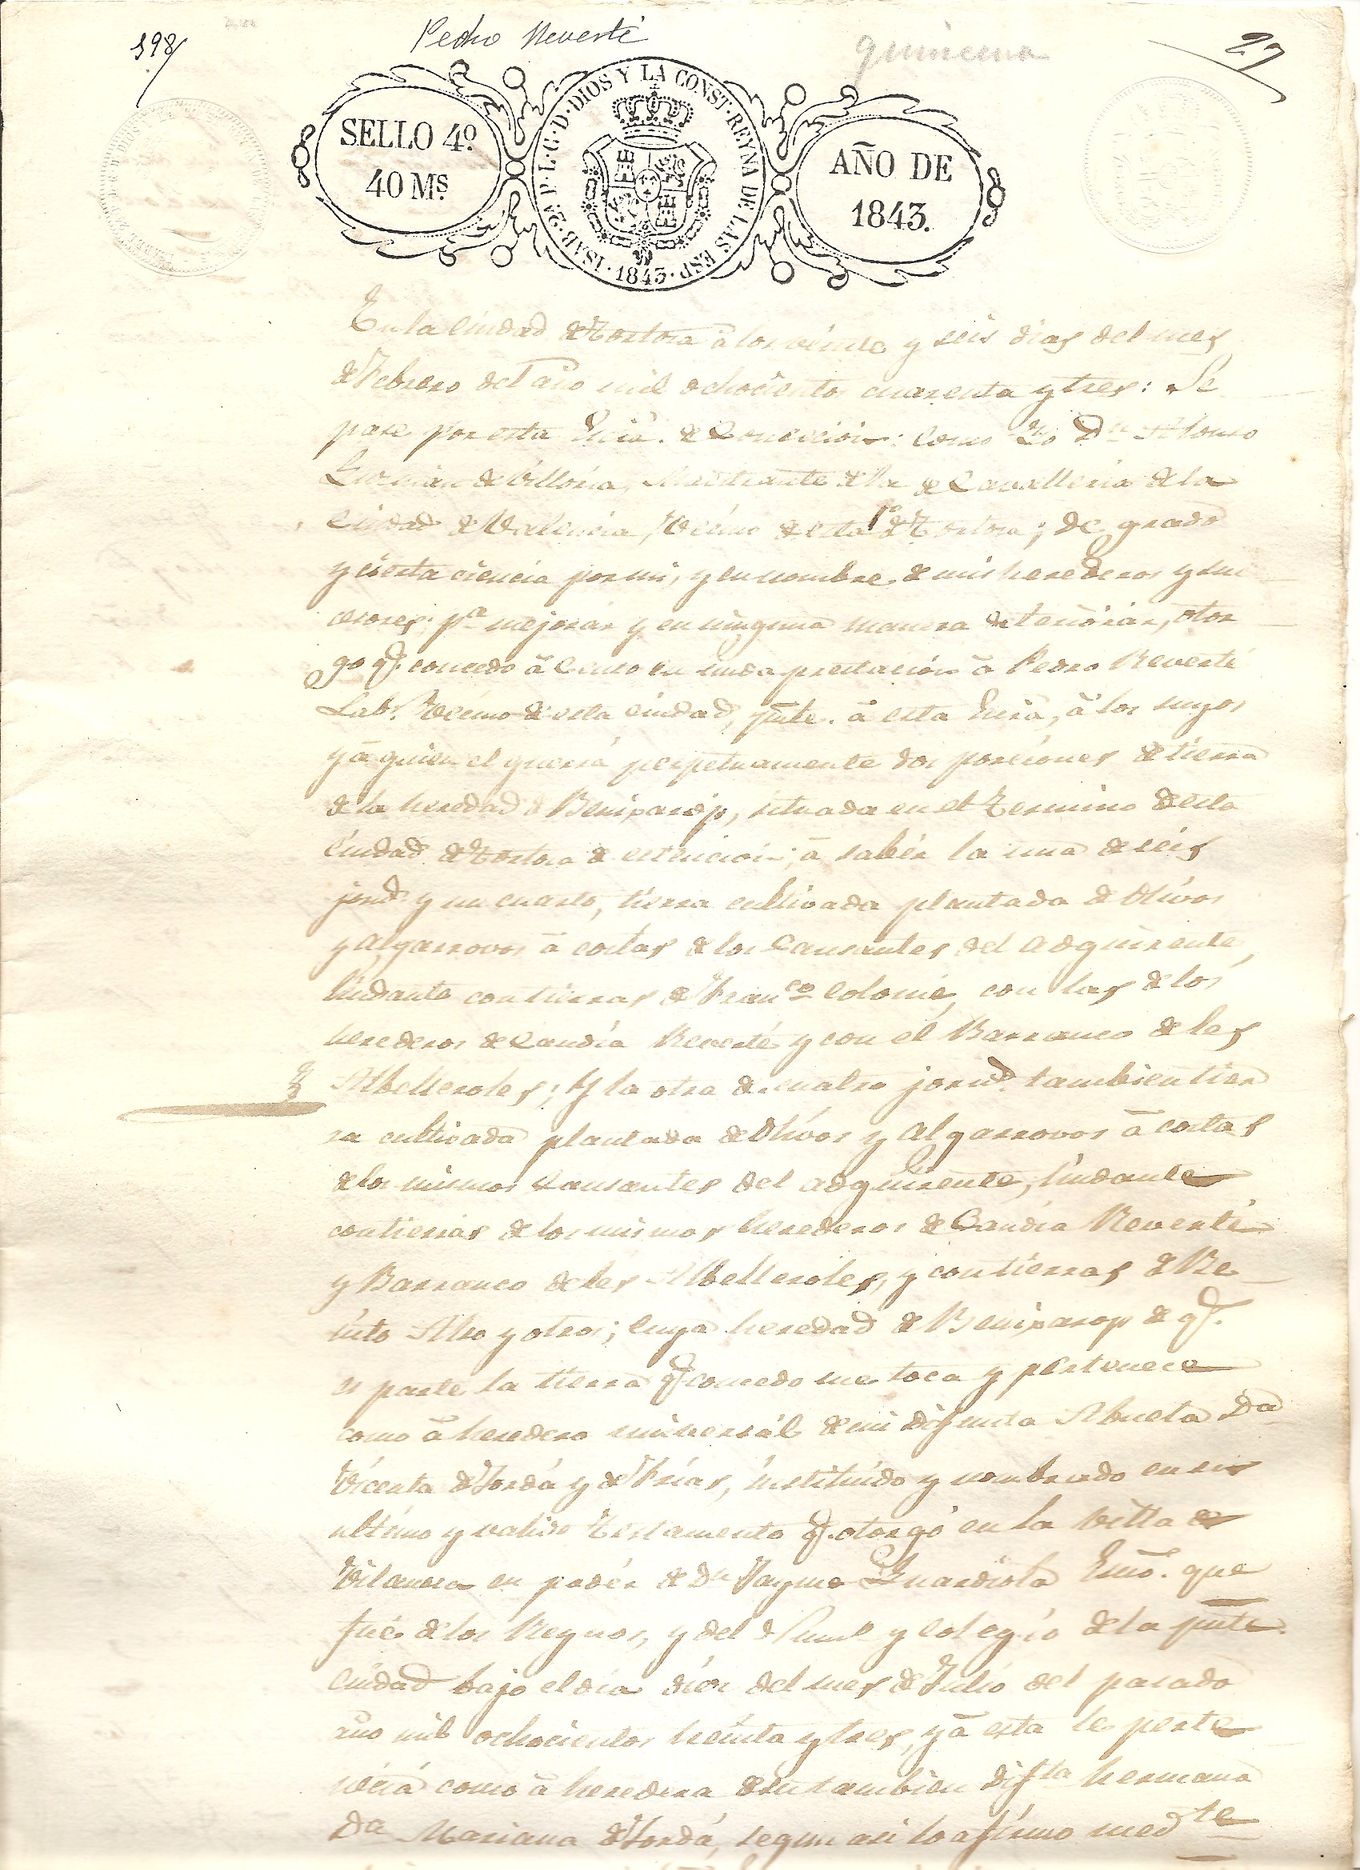 198
Pedro Reverté
27
SELLO 4º
40 Ms.
ISAB. 2ª P. L. G. D. DIOS Y LA CONST. REYNA DE LAS ESP. 1843.
AÑO DE
1843.
En la Ciudad de Tortosa â los veinte y seis dias del mes
de Febrero del año mil ochocientos cuarenta y tres: Se
pase por esta de Concecion: como Yo Dn. Alonso
Guzmán de Villoria, Maestrante de la de Cavalleria de la
Ciudad de Valencia, Vecino de esta de Tortosa; de grado
y cierta ciencia por mi, y en nombre de mis herederos y suc
cesores; pa. mejorar y en ninguna manera deteriorar, otor
go q. concedo â Censo en nuda prestacion â Pedro Reverté
Labr. Vecino de esta Ciudad, pnte. â esta Escra, â los suyos
y â quien el querrá perpetuamente dos porciones de tierra
de la heredad de Beniparop, situada en el Termino de esta
Ciudad de Tortosa de estencion; â sabér la una de seis
jornd. y un cuarto, tierra cultivada plantada de Olivos
y Algarrovos â costas de los Causantes del adquirente,
lindante con tierras de Franco. Colomé, con las de los
herederos de Candia Reverté y con el Barranco de les
Albelleroles; Y la otra de cuatro jornd. tambien tier
ra cultivada plantada de Olivos y Algarrovos â costas
de los mismos Causantes del adquirente, lindante
con tierras de los mismos herederos de Candia Reverté
y Barranco de les Albelleroles, y con tierras de Be
nito y otros; cuya heredad de Beniparop de q.
es parte la tierra q. concedo me toca y pertenece
como â heredero universál de mi difunta Abuela Da
Vicenta de Jordá y de Frias, instituido y nombrado en su
ultimo y valido Testamento q. otorgó en la Villa de
Vilanova en podér de Dn Jayme Guardiola Esno. que
fué de los Reynos, y del y Colegio de la pnte.
Ciudad bajo el dia diez del mes de Julio del pasado
año mil ochocientos treinta y tres, y â esta le perte
necia como â heredera de su tambien difta hermana
Da Mariana de Jordá, segun asi lo afirmo medte